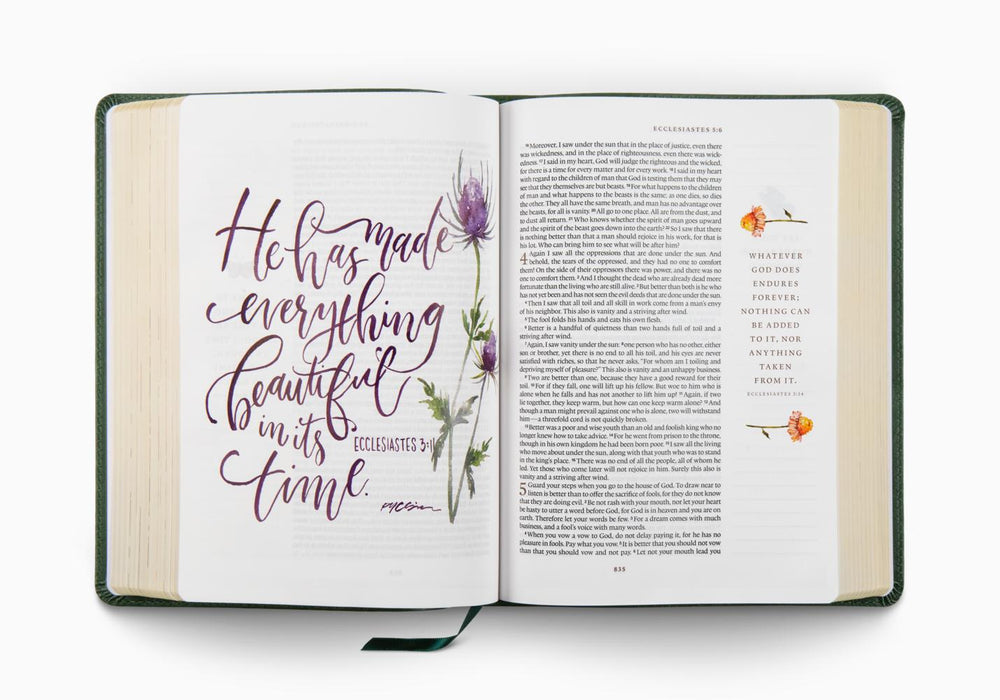 He has made
everything
beautiful
in its
ECCLESIASTES 3:11
time.
ECCLESIASTES 5:6
16 Moreover, I saw under the sun that in the place of justice, even there
was wickedness, and in the place of righteousness, even there was wick-
edness. 17 I said in my heart, God will judge the righteous and the wicked,
for there is a time for every matter and for every work. 18 I said in my heart
with regard to the children of man that God is testing them that they may
see that they themselves are but beasts. 19 For what happens to the children
of man and what happens to the beasts is the same; as one dies, so dies
the other. They all have the same breath, and man has no advantage over
the beasts, for all is vanity. 20 All go to one place. All are from the dust, and
to dust all return. 21 Who knows whether the spirit of man goes upward
and the spirit of the beast goes down into the earth? 22 So I saw that there
is nothing better than that a man should rejoice in his work, for that is
his lot. Who can bring him to see what will be after him?
4 Again I saw all the oppressions that are done under the sun. And
behold, the tears of the oppressed, and they had no one to comfort
them! On the side of their oppressors there was power, and there was no
one to comfort them. 2 And I thought the dead who are already dead more
fortunate than the living who are still alive. 3 But better than both is he who
has not yet been and has not seen the evil deeds that are done under the sun.
4 Then I saw that all toil and all skill in work come from a man's envy
of his neighbor. This also is vanity and a striving after wind.
5 The fool folds his hands and eats his own flesh.
6 Better is a handful of quietness than two hands full of toil and a
striving after wind.
7 Again, I saw vanity under the sun: 8 one person who has no other, either
son or brother, yet there is no end to all his toil, and his eyes are never
satisfied with riches, so that he never asks, "For whom am I toiling and
depriving myself of pleasure?" This also is vanity and an unhappy business.
9 Two are better than one, because they have a good reward for their
toil. 10 For if they fall, one will lift up his fellow. But woe to him who is
alone when he falls and has not another to lift him up! 11 Again, if two
lie together, they keep warm, but how can one keep warm alone? 12 And
though a man might prevail against one who is alone, two will withstand
him—a threefold cord is not quickly broken.
13 Better was a poor and wise youth than an old and foolish king who no
longer knew how to take advice. 14 For he went from prison to the throne,
though in his own kingdom he had been born poor. 15 I saw all the living
who move about under the sun, along with that youth who was to stand
in the king's place. 16 There was no end of all the people, all of whom he
led. Yet those who come later will not rejoice in him. Surely this also is
vanity and a striving after wind.
5 Guard your steps when you go to the house of God. To draw near to
listen is better than to offer the sacrifice of fools, for they do not know
that they are doing evil. 2 Be not rash with your mouth, nor let your heart
be hasty to utter a word before God, for God is in heaven and you are on
earth. Therefore let your words be few. 3 For a dream comes with much
business, and a fool's voice with many words.
4 When you vow a vow to God, do not delay paying it, for he has no
pleasure in fools. Pay what you vow. 5 It is better that you should not vow
than that you should vow and not pay. 6 Let not your mouth lead you
835
WHATEVER
GOD DOES
ENDURES
FOREVER;
NOTHING CAN
BE ADDED
TO IT, NOR
ANYTHING
TAKEN
FROM IT.
ECCLESIASTES 3:14